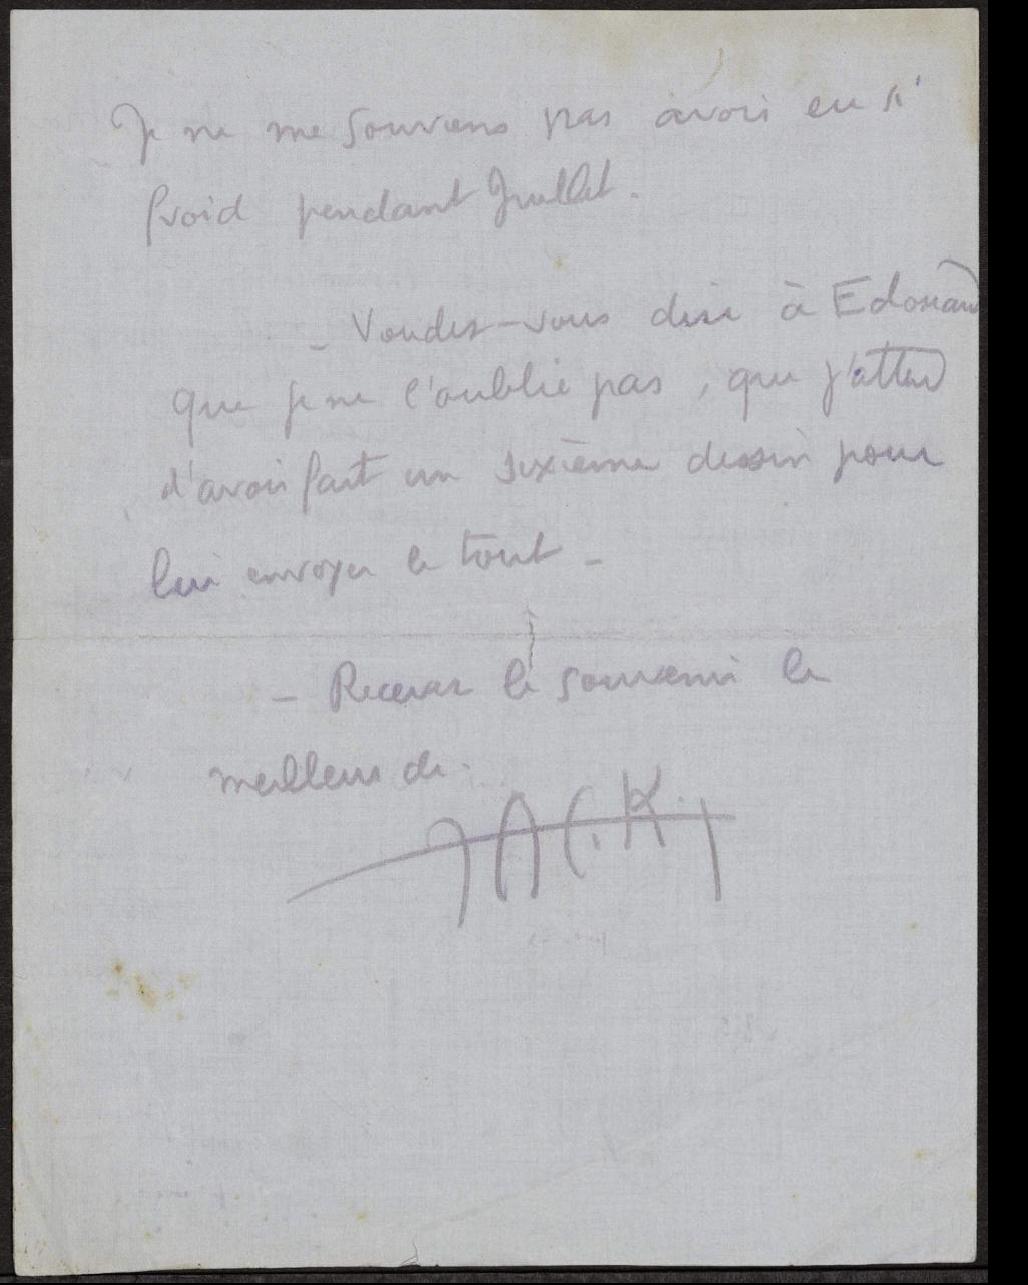 Je ne me souviens pas avoir eu si
froid pendant Juillet.
_ Voudez-vous dire à Edouard
que je ne l'oublie pas, que j'attend
d'avoir fait un sixième dessin pour
lui envoyer le tout _
_ Recevez le souvenir le
meilleur de.